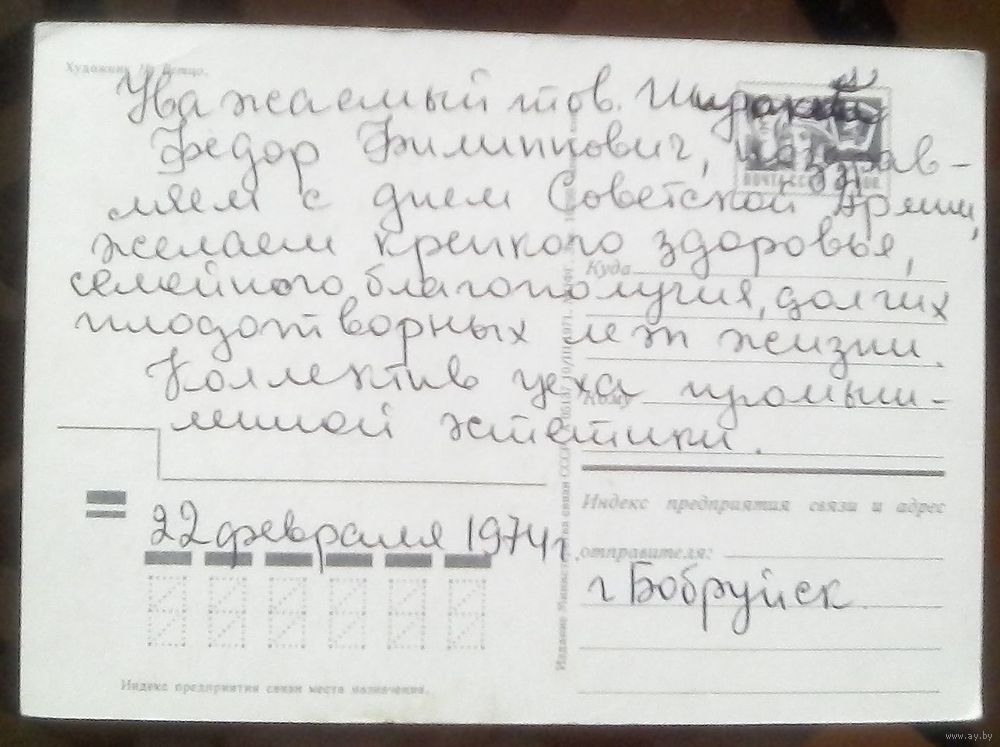 Художник
Уважаемый тов.
Федор Филиппович, поздрав-
ляем с днем Советской Армии,
желаем крепкого здоровья,
семейного благополучия, долгих
плодотворных лет жизни.
Коллектив цеха промыш-
ленной эстетики.
22 февраля 1974 г.
Куда
Кому
Индекс предприятия связи и адрес
отправителя:
г Бобруйск
Индекс предприятия связи места назначения.
www.ay.by